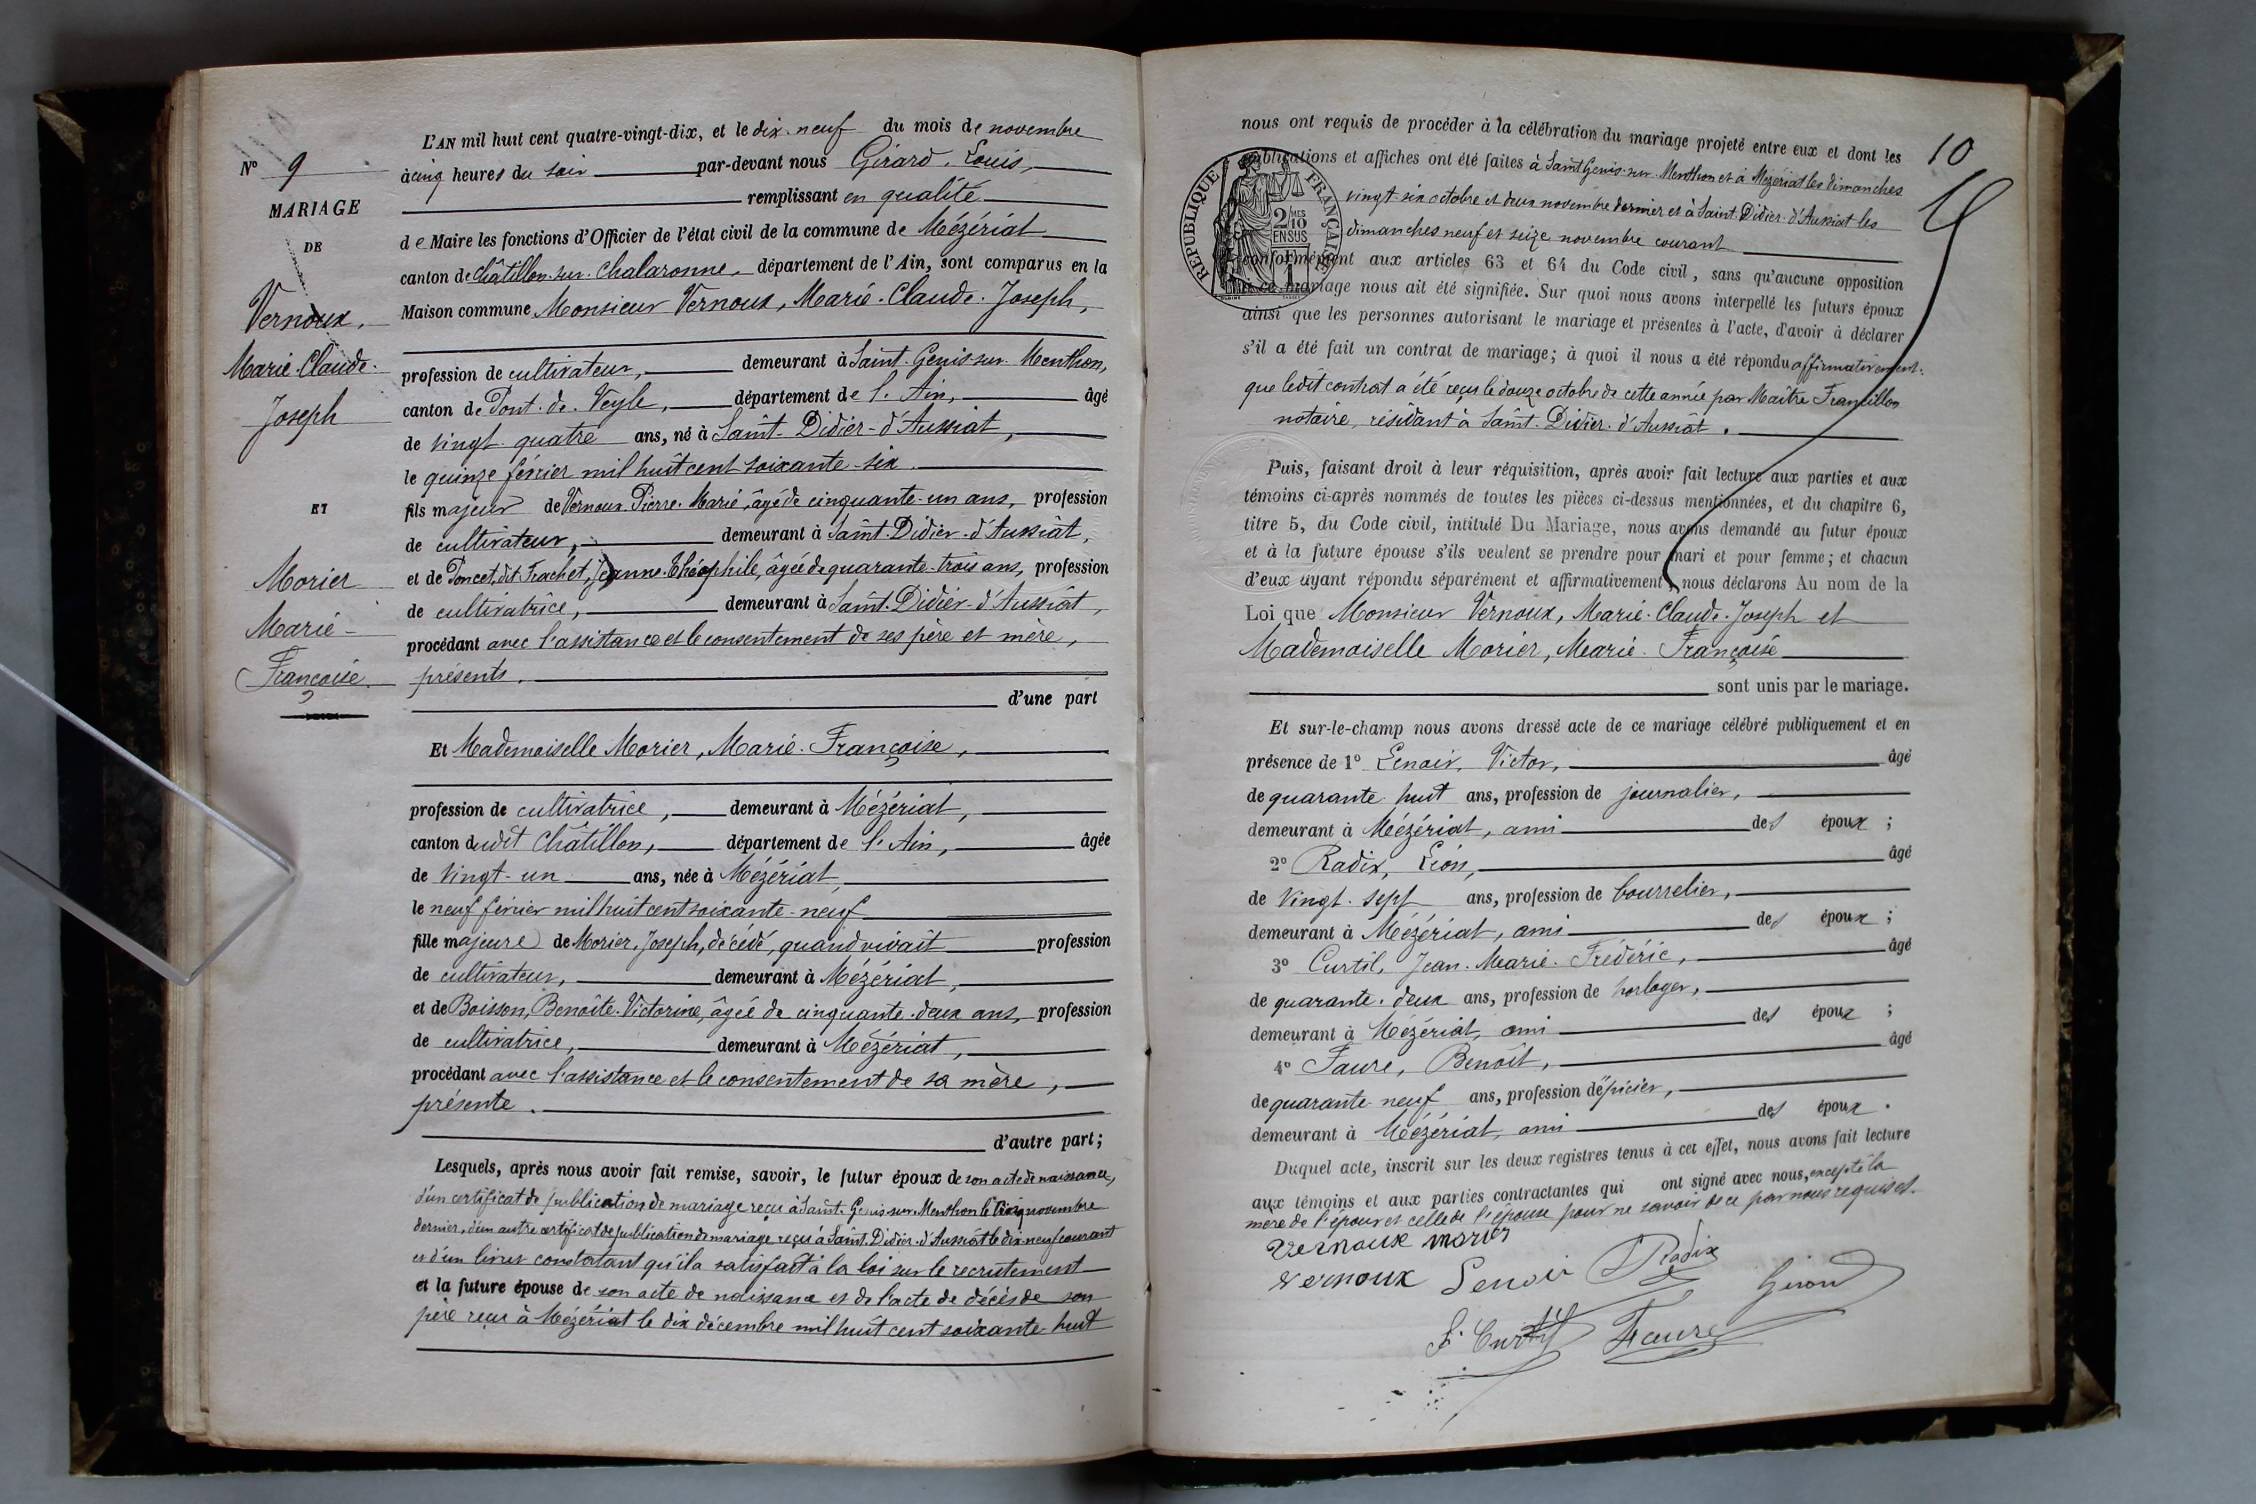 L'AN mil huit cent quatre-vingt-dix, et le dix-neuf du mois de novembre
N° 9
à cinq heures du soir par-devant nous Girard, Louis,
MARIAGE
remplissant en qualité
DE
de Maire les fonctions d'Officier de l'état civil de la commune de Mézériat
canton de Châtillon-sur-Chalaronne, département de l'Ain, sont comparus en la
Vernoux,
Maison commune Monsieur Vernoux, Marie-Claude-Joseph,
Marie-Claude-
profession de cultivateur, demeurant à Saint-Genis-sur-Menthon,
Joseph
canton de Pont-de-Veyle, département de l'Ain, âgé
de vingt-quatre ans, né à Saint-Didier-d'Aussiat,
le quinze février mil huit cent soixante-six.
ET
fils majeur de Vernoux Pierre-Marie, âgé de cinquante-un ans, profession
de cultivateur, demeurant à Saint-Didier-d'Aussiat,
Morier
et de Poncet, dit Frachet, Jeanne-Théophile, âgée de quarante-trois ans, profession
de cultivatrice, demeurant à Saint-Didier-d'Aussiat,
Marie-
procédant avec l'assistance et le consentement de ses père et mère,
Françoise.
présents.
d'une part
Et Mademoiselle Morier, Marie-Françoise,
profession de cultivatrice, demeurant à Mézériat,
canton dudit Châtillon, département de l'Ain, âgée
de vingt-un ans, née à Mézériat,
le neuf février mil huit cent soixante-neuf
fille majeure de Morier, Joseph, décédé, quand vivait profession
de cultivateur, demeurant à Mézériat,
et de Boisson, Benoîte-Victorine, âgée de cinquante-deux ans, profession
de cultivatrice, demeurant à Mézériat,
procédant avec l'assistance et le consentement de sa mère,
présente.
d'autre part;
Lesquels, après nous avoir fait remise, savoir, le futur époux de son acte de naissance,
d'un certificat de publication de mariage reçu à Saint-Genis-sur-Menthon le cinq novembre
dernier, d'un autre certificat de publication de mariage reçu à Saint-Didier-d'Aussiat le dix-neuf courant
et d'un livret constatant qu'il a satisfait à la loi sur le recrutement
et la future épouse de son acte de naissance et de l'acte de décès de son
père reçu à Mézériat le dix décembre mil huit cent soixante-huit
10
nous ont requis de procéder à la célébration du mariage projeté entre eux et dont les
publications et affiches ont été faites à Saint Genis-sur-Menthon et à Mézériat les dimanches
vingt-six octobre et deux novembre dernier et à Saint-Didier-d'Aussiat les
dimanches neuf et seize novembre courant
RÉPUBLIQUE FRANÇAISE
2/10 MES
EN SUS
conformément aux articles 63 et 64 du Code civil, sans qu'aucune opposition
à ce mariage nous ait été signifiée. Sur quoi nous avons interpellé les futurs époux
ainsi que les personnes autorisant le mariage et présentes à l'acte, d'avoir à déclarer
s'il a été fait un contrat de mariage; à quoi il nous a été répondu affirmativement:
que ledit contrat a été reçu le douze octobre de cette année par Maître Francillon
notaire, résidant à Saint-Didier-d'Aussiat.
Puis, faisant droit à leur réquisition, après avoir fait lecture aux parties et aux
témoins ci-après nommés de toutes les pièces ci-dessus mentionnées, et du chapitre 6,
titre 5, du Code civil, intitulé Du Mariage, nous avons demandé au futur époux
et à la future épouse s'ils veulent se prendre pour mari et pour femme; et chacun
d'eux ayant répondu séparément et affirmativement, nous déclarons Au nom de la
Loi que Monsieur Vernoux, Marie-Claude-Joseph et
Mademoiselle Morier, Marie-Françoise
sont unis par le mariage.
Et sur-le-champ nous avons dressé acte de ce mariage célébré publiquement et en
présence de 1° Lenoir, Victor, âgé
de quarante-huit ans, profession de journalier,
demeurant à Mézériat, ami des époux;
2° Radix, Léon, âgé
de vingt-sept ans, profession de bourrelier,
demeurant à Mézériat, ami des époux;
3° Curtil, Jean-Marie-Frédéric, âgé
de quarante-deux ans, profession de horloger,
demeurant à Mézériat, ami des époux;
4° Faure, Benoît, âgé
de quarante-neuf ans, profession d'épicier,
demeurant à Mézériat, ami des époux.
Duquel acte, inscrit sur les deux registres tenus à cet effet, nous avons fait lecture
aux témoins et aux parties contractantes qui ont signé avec nous, excepté la
mère de l'époux et celle de l'épouse pour ne savoir de ce par nous requises.
Vernoux morier
Vernoux Lenoir Radix
Girard
F. Curtil Faure